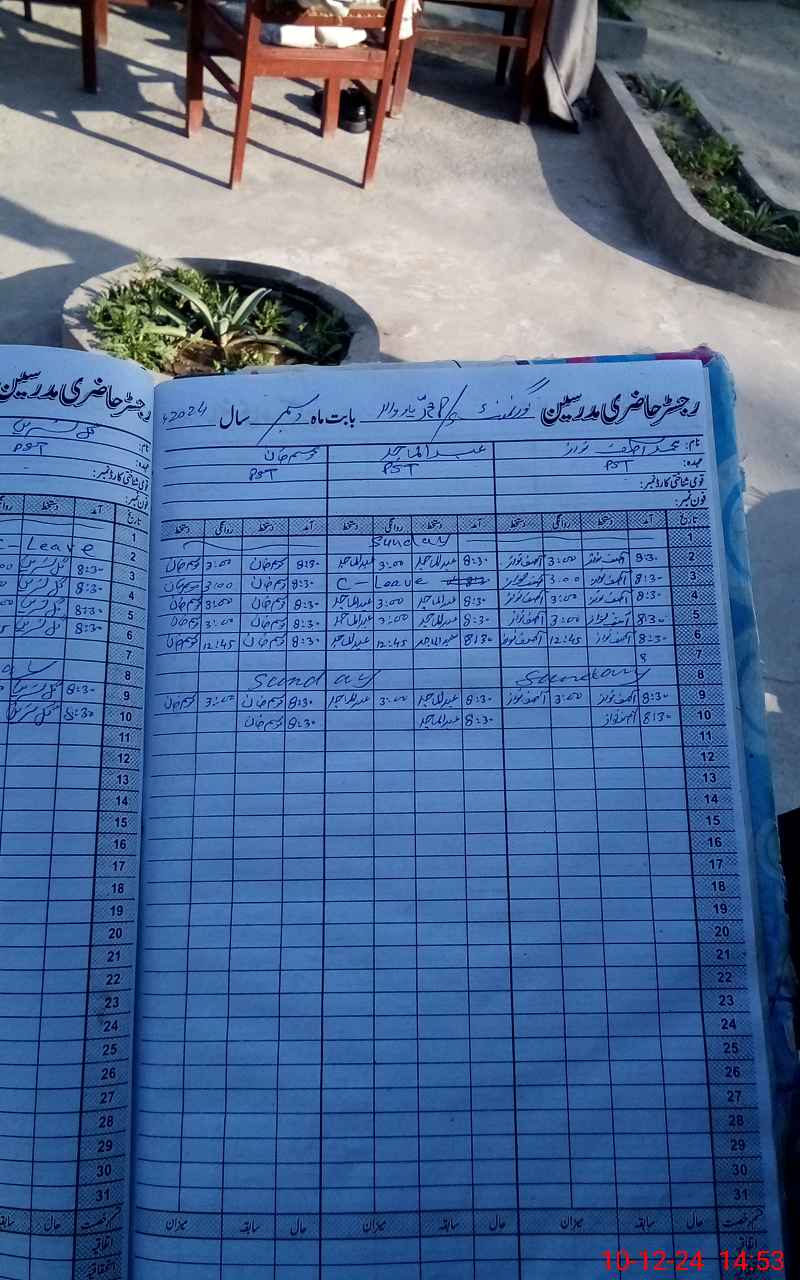 رجسٹر حاضری مدرسین گورنمنٹ بابت ماہ دسمبر سال 2024ء
نام: محمد آصف نواز عبدالماجد وسیم خان
عہدہ: PST PST PST
قومی شناختی کارڈ نمبر:
فون نمبر:
تاریخ آمد دستخط روانگی دستخط آمد دستخط روانگی دستخط آمد دستخط روانگی دستخط
1 Sunday
2 8:30 آصف نواز 3:00 آصف نواز 8:30 عبدالماجد 3:00 عبدالماجد 8:30 وسیم خان 3:00 وسیم خان
3 8:30 آصف نواز 3:00 آصف نواز C-Leave 8:30 وسیم خان 3:00 وسیم خان
4 8:30 آصف نواز 3:00 آصف نواز 8:30 عبدالماجد 3:00 عبدالماجد 8:30 وسیم خان 3:00 وسیم خان
5 8:30 آصف نواز 3:00 آصف نواز 8:30 عبدالماجد 3:00 عبدالماجد 8:30 وسیم خان 3:00 وسیم خان
6 8:30 آصف نواز 12:45 آصف نواز 8:30 عبدالماجد 12:45 عبدالماجد 8:30 وسیم خان 12:45 وسیم خان
7
8 Sunday Sunday
9 8:30 آصف نواز 3:00 آصف نواز 8:30 عبدالماجد 3:00 عبدالماجد 8:30 وسیم خان 3:00 وسیم خان
10 8:30 آصف نواز 8:30 عبدالماجد 8:30 وسیم خان
11
12
13
14
15
16
17
18
19
20
21
22
23
24
25
26
27
28
29
30
31
قسم رخصت حال سابقہ میزان حال سابقہ میزان حال سابقہ میزان
اتفاقیہ
استحقاقیہ
رجسٹر حاضری مدرسین
نام:
عہدہ: PST
قومی شناختی کارڈ نمبر:
فون نمبر:
تاریخ آمد دستخط
1
2 C-Leave
3 8:30
4 8:30
5 8:30
6 8:30
7
8
9 8:30
10 8:30
11
12
13
14
15
16
17
18
19
20
21
22
23
24
25
26
27
28
29
30
31
قسم رخصت حال سابقہ
اتفاقیہ
استحقاقیہ
10-12-24 14:53